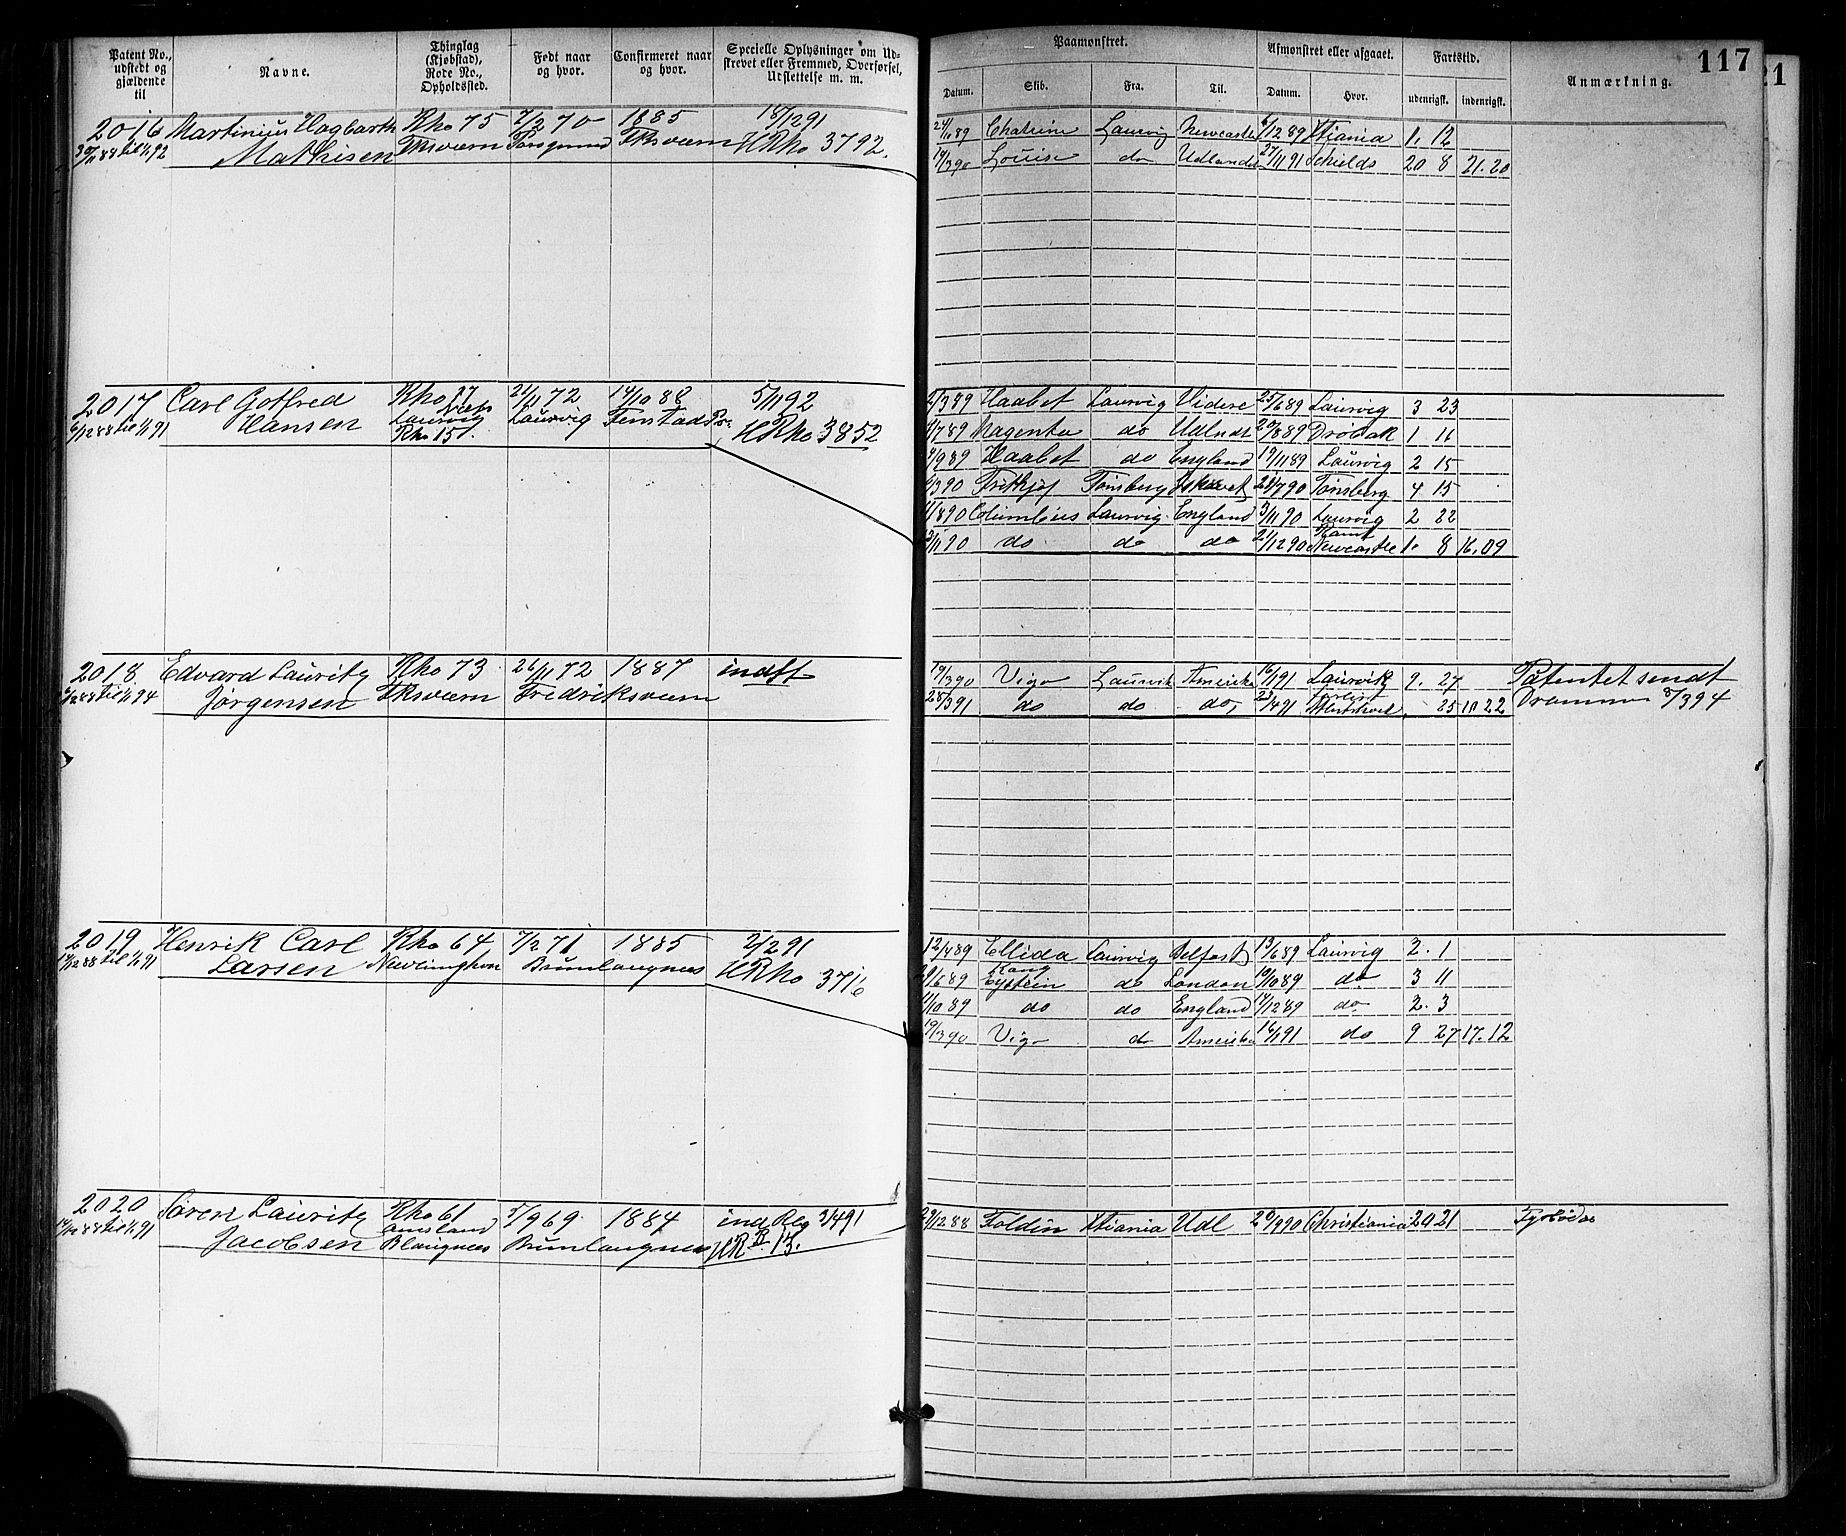 Patent No., udstedt og gjældende til
Navne.
Thinglag (Kjøbstad), Rode No., Opholdssted.
Født naar og hvor.
Confirmeret naar og hvor.
Specielle Oplysninger om Udskrevet eller Fremmed, Overførsel, Udslettelse m. m.
Paamønstret.
Afmønstret eller afgaaet.
Fartstid.
Anmærkning.
117
21
Datum. Skib. Fra. Til. Datum. Hvor. udenrigsk. indenrigsk.
2016 Martinius Hagbarth Rho 75 7/2 70 1885 18/12 91
30/11 88 til 1/1 92 Mathisen Fksværn Fksværn HRho 3792.
24/10 89 Chatrin Laurvig Newcastle 6/12 89 Xtiania 1. 12
19/3 90 Louise do Udlandet 27/11 91 Schields 20 8 21.20
2017 Carl Gotfred Rho 77 21/11 72 14/10 88 5/11 92
6/12 88 til 1/1 91 Hansen Laurvig Laurvig HRho 3852
Rho 151.
2/3 89 Haabet Laurvig Videre 25/6 89 Laurvig 3 23
1/7 89 Magenta do Udlndt 20/8 89 Drøbak 1 11
4/9 89 Haabet do England 19/11 89 Laurvig 2 15
Fritkjof Tønsberg Ishavet 20/7 90 Tønsberg 4 15
11/8 90 Columbus Laurvig England 3/11 90 Laurvig 2 22
do do do 21/12 90 Newcastle 1. 8 16.09
2018 Edvard Lauritz Rho 73 26/11 72 1887 indft
til 1/1 94 Jørgensen Fksværn Fredriksværn
19/3 90 Vigo Laurvik Amerika 16/1 91 Laurvik 9. 27 Patentet sendt
28/3 91 do do do, 23/4 91 forlist 25 10 22 Drammen 8/3 94
2019 Henrik Carl Rho 64 7/2 71 1885 2/2 91
14/12 88 til 1/1 91 Larsen Brunlaugnes HRho 3716
12/4 89 Ellida Laurvig Belfast 13/6 89 Laurvig 2. 1
Kong
29/6 89 Eystein do London 10/10 89 do 3 11
11/10 89 do do England 14/12 89 do 2. 3
19/3 90 Vigo do Amerika 16/1 91 do 9 27 17.12
2020 Søren Lauritz Rho 61 5/9 69. 1884 ind Reg 3/4 91
14/12 88 til 1/1 91 Jacobsen Blaugnes Brunlaugnes HR II. 13.
29/12 88 Foldin Xtiania Udl 20/9 90 Christiania 20 21 Fyrbøder